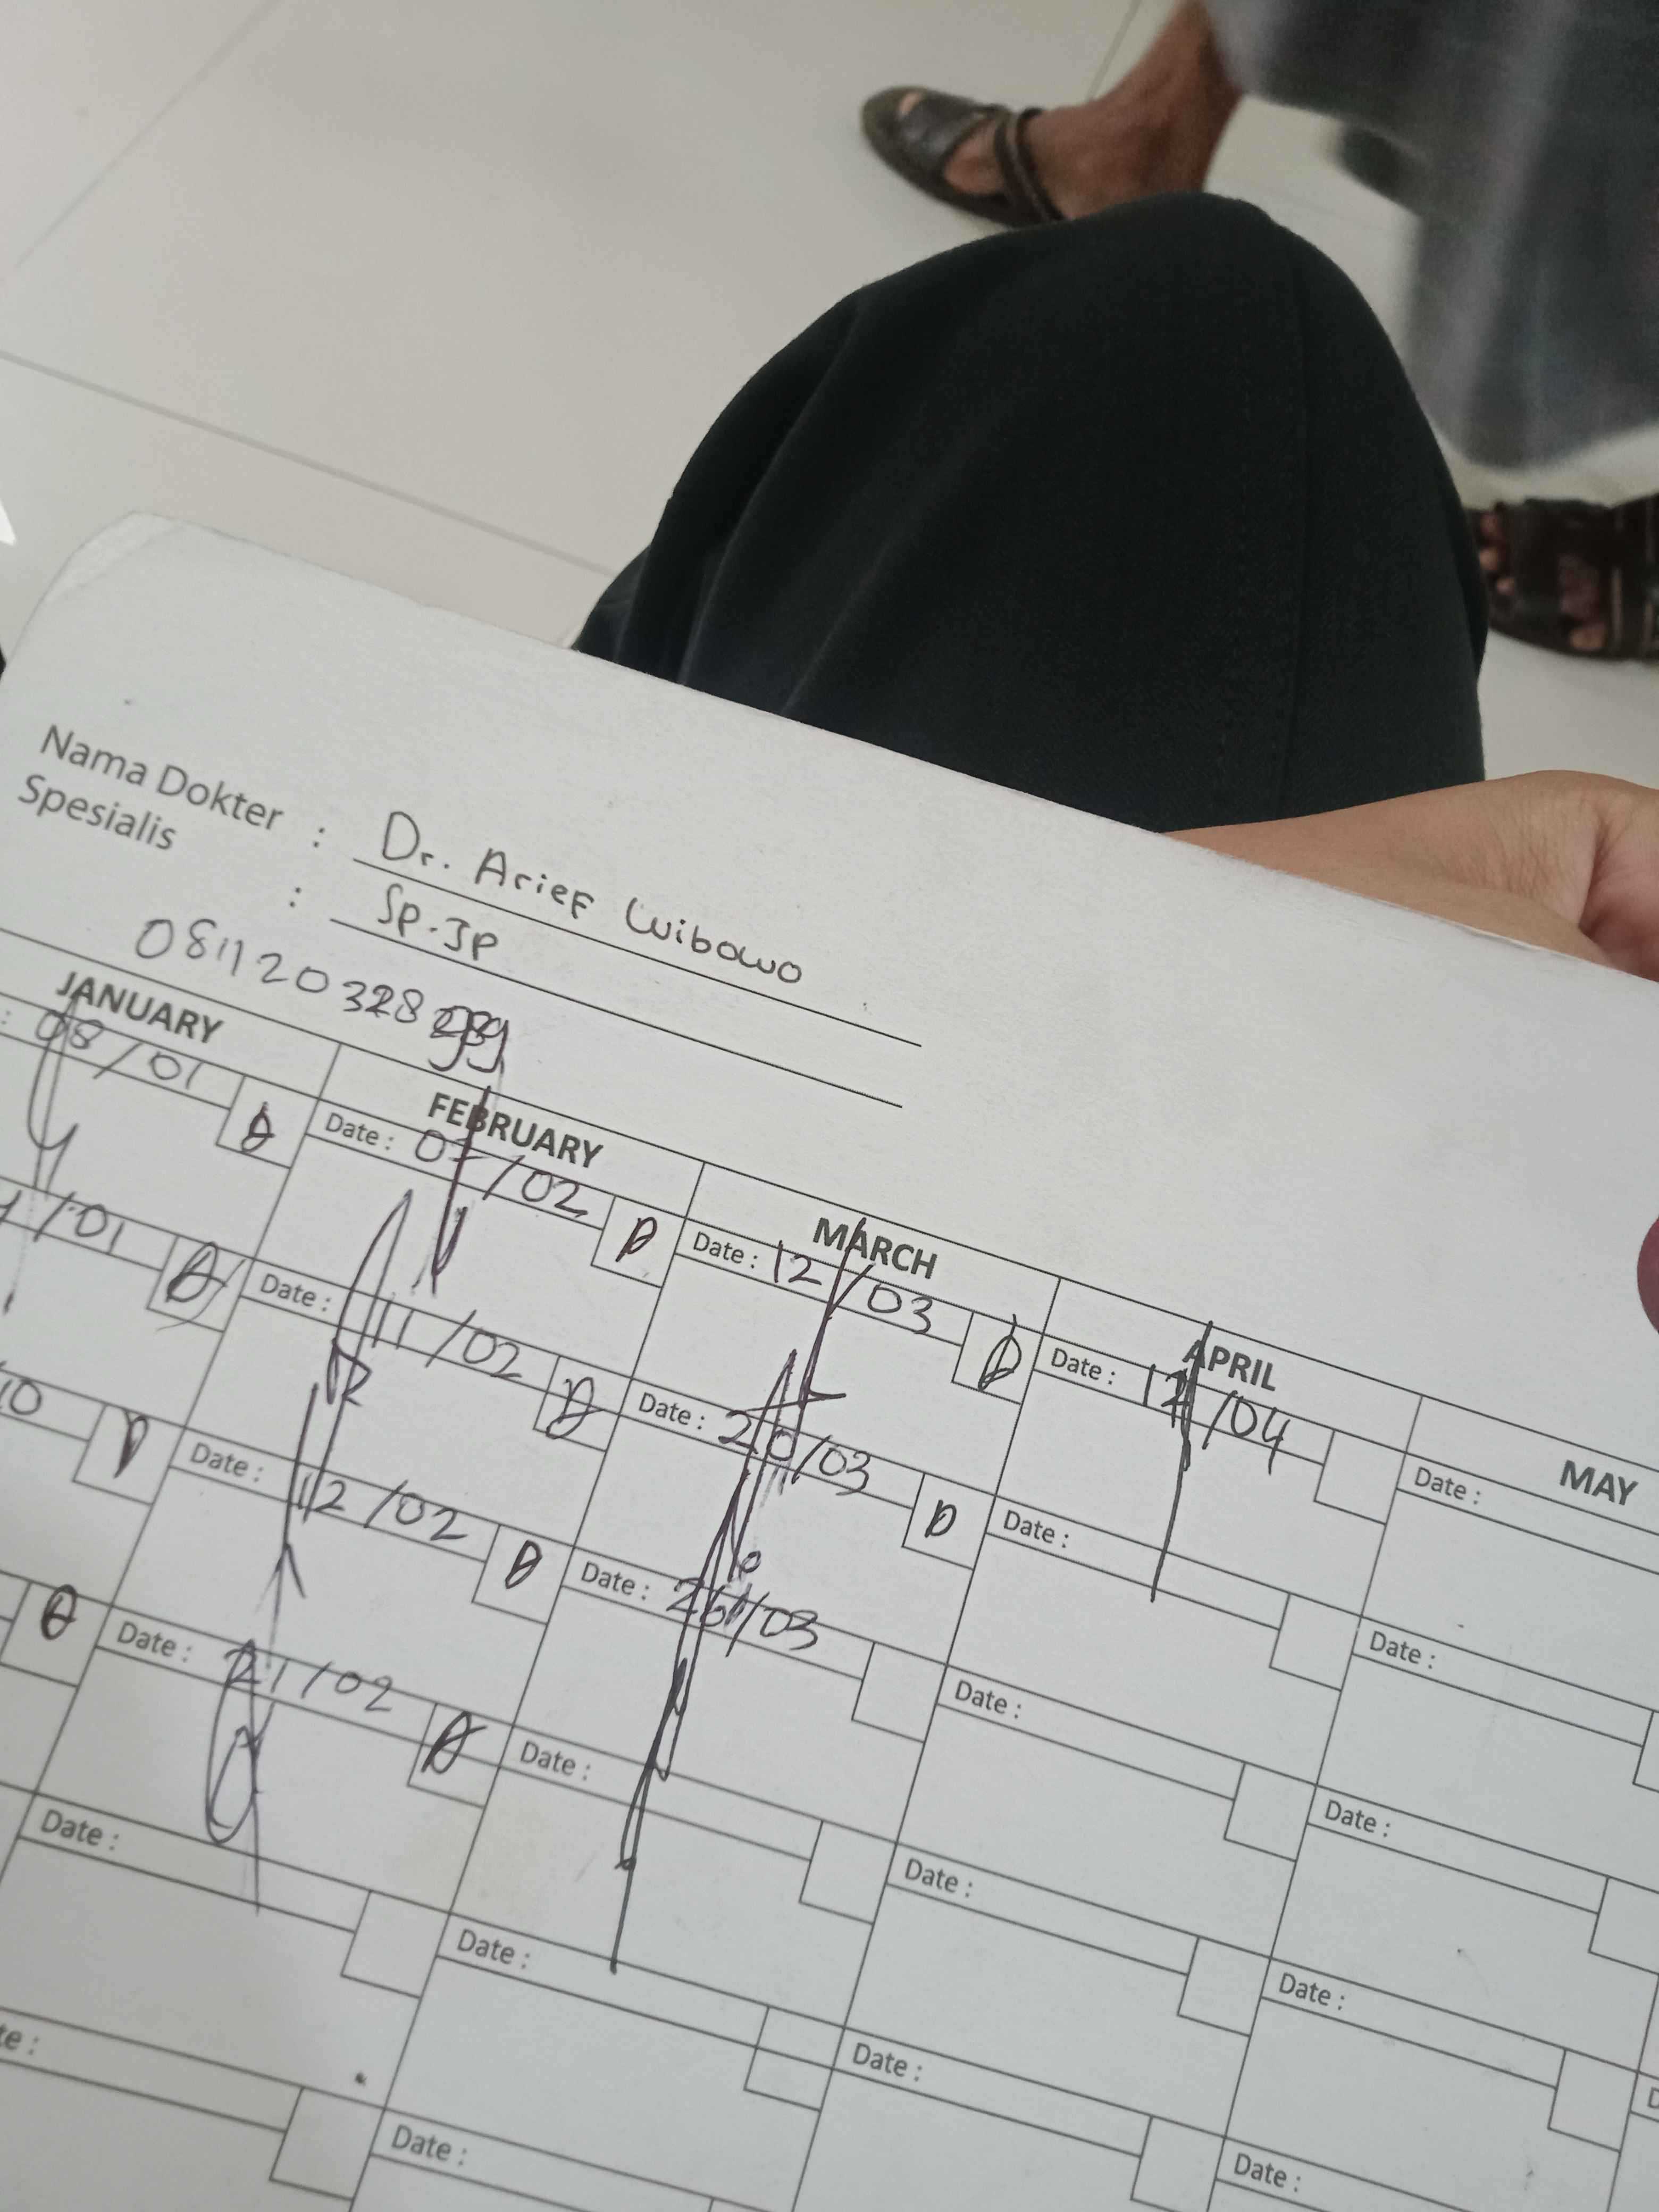 Nama Dokter : Dr. Arief Wibowo
Spesialis : Sp.JP
JANUARY FEBRUARY MARCH APRIL MAY
08/01 Date : 07/02 Date : 12/03 Date : 12/04 Date :
/01 Date : 11/02 Date : 20/03 Date : Date :
Date : 12/02 Date : 26/03 Date : Date :
Date : 21/02 Date : Date : Date :
Date : Date : Date : Date :
Date : Date :